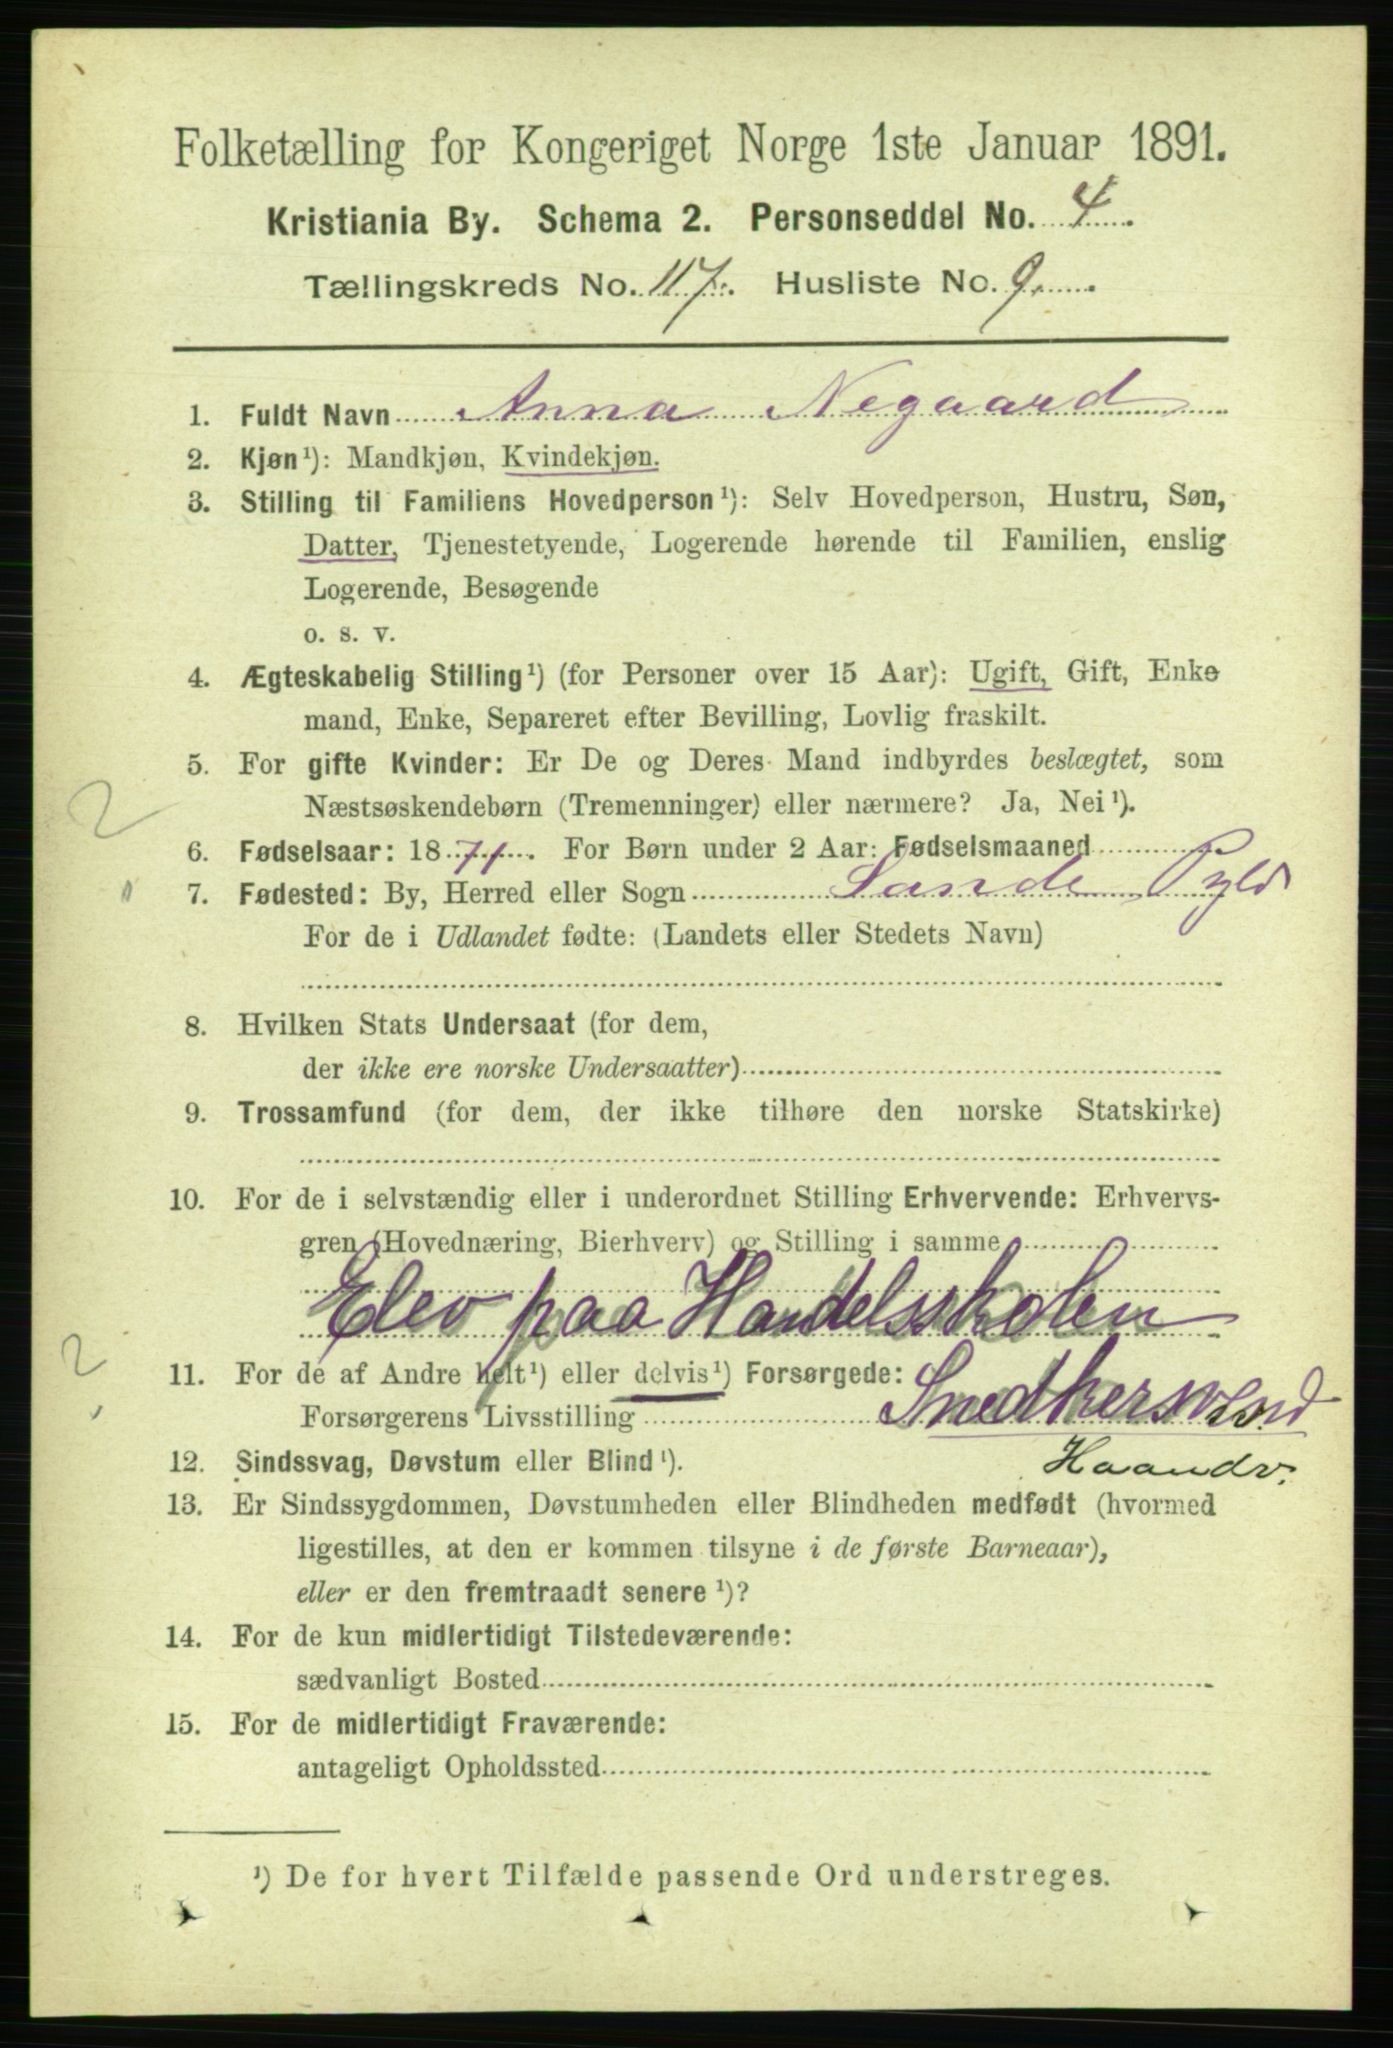 Folketælling for Kongeriget Norge 1ste Januar 1891.
Kristiania By. Schema 2. Personseddel No. 4.
Tællingskreds No. 117. Husliste No. 9.
1. Fuldt Navn Anna Negaard
2. Kjøn¹): Mandkjøn, Kvindekjøn.
3. Stilling til Familiens Hovedperson¹): Selv Hovedperson, Hustru, Søn,
Datter, Tjenestetyende, Logerende hørende til Familien, enslig
Logerende, Besøgende
o. s. v.
4. Ægteskabelig Stilling¹) (for Personer over 15 Aar): Ugift, Gift, Enke
mand, Enke, Separeret efter Bevilling, Lovlig fraskilt.
5. For gifte Kvinder: Er De og Deres Mand indbyrdes beslægtet, som
Næstsøskendebørn (Tremenninger) eller nærmere? Ja, Nei¹).
2
6. Fødselsaar: 1871. For Børn under 2 Aar: Fødselsmaaned
7. Fødested: By, Herred eller Sogn Sande
For de i Udlandet fødte: (Landets eller Stedets Navn)
8. Hvilken Stats Undersaat (for dem,
der ikke ere norske Undersaatter)
9. Trossamfund (for dem, der ikke tilhøre den norske Statskirke)
10. For de i selvstændig eller i underordnet Stilling Erhvervende: Erhvervs-
gren (Hovednæring, Bierhverv) og Stilling i samme
Elev paa Handelsskolen
2
11. For de af Andre helt¹) eller delvis¹) Forsørgede:
Forsørgerens Livsstilling
Haandv.
12. Sindssvag, Døvstum eller Blind¹).
13. Er Sindssygdommen, Døvstumheden eller Blindheden medfødt (hvormed
ligestilles, at den er kommen tilsyne i de første Barneaar),
eller er den fremtraadt senere¹)?
14. For de kun midlertidigt Tilstedeværende:
sædvanligt Bosted
15. For de midlertidigt Fraværende:
antageligt Opholdssted
¹) De for hvert Tilfælde passende Ord understreges.